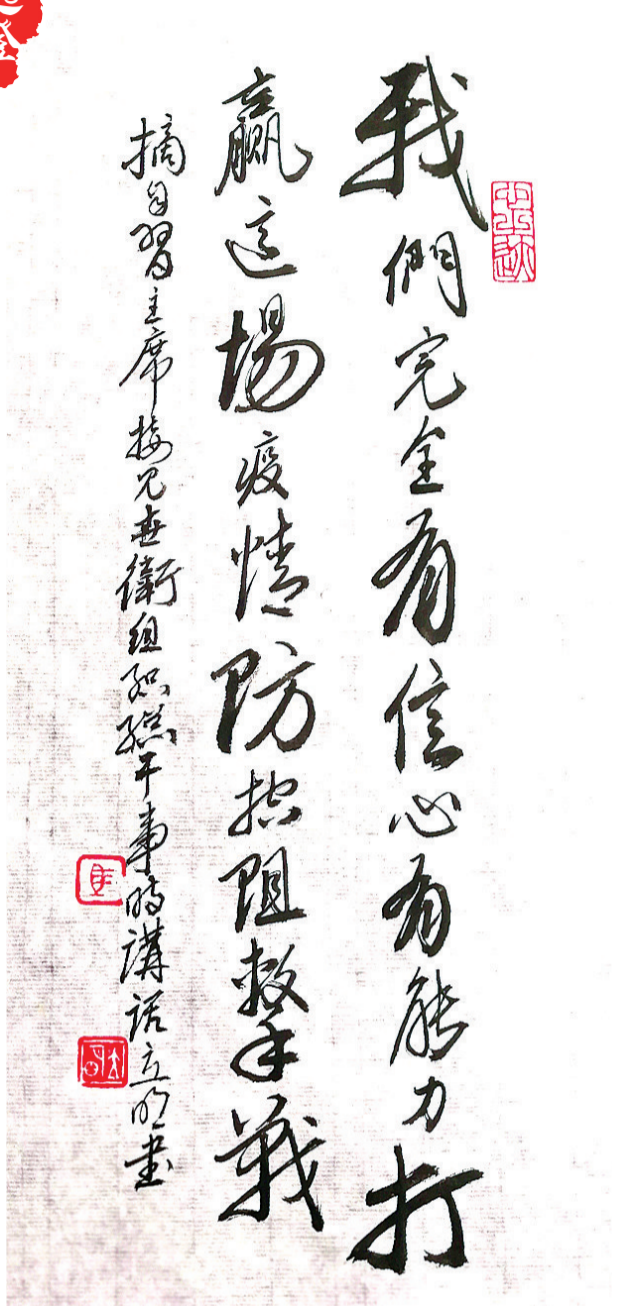 我們完全有信心有能力打
贏這場疫情防控阻擊戰
摘自習主席接見世衛組織總干事時講話立明書